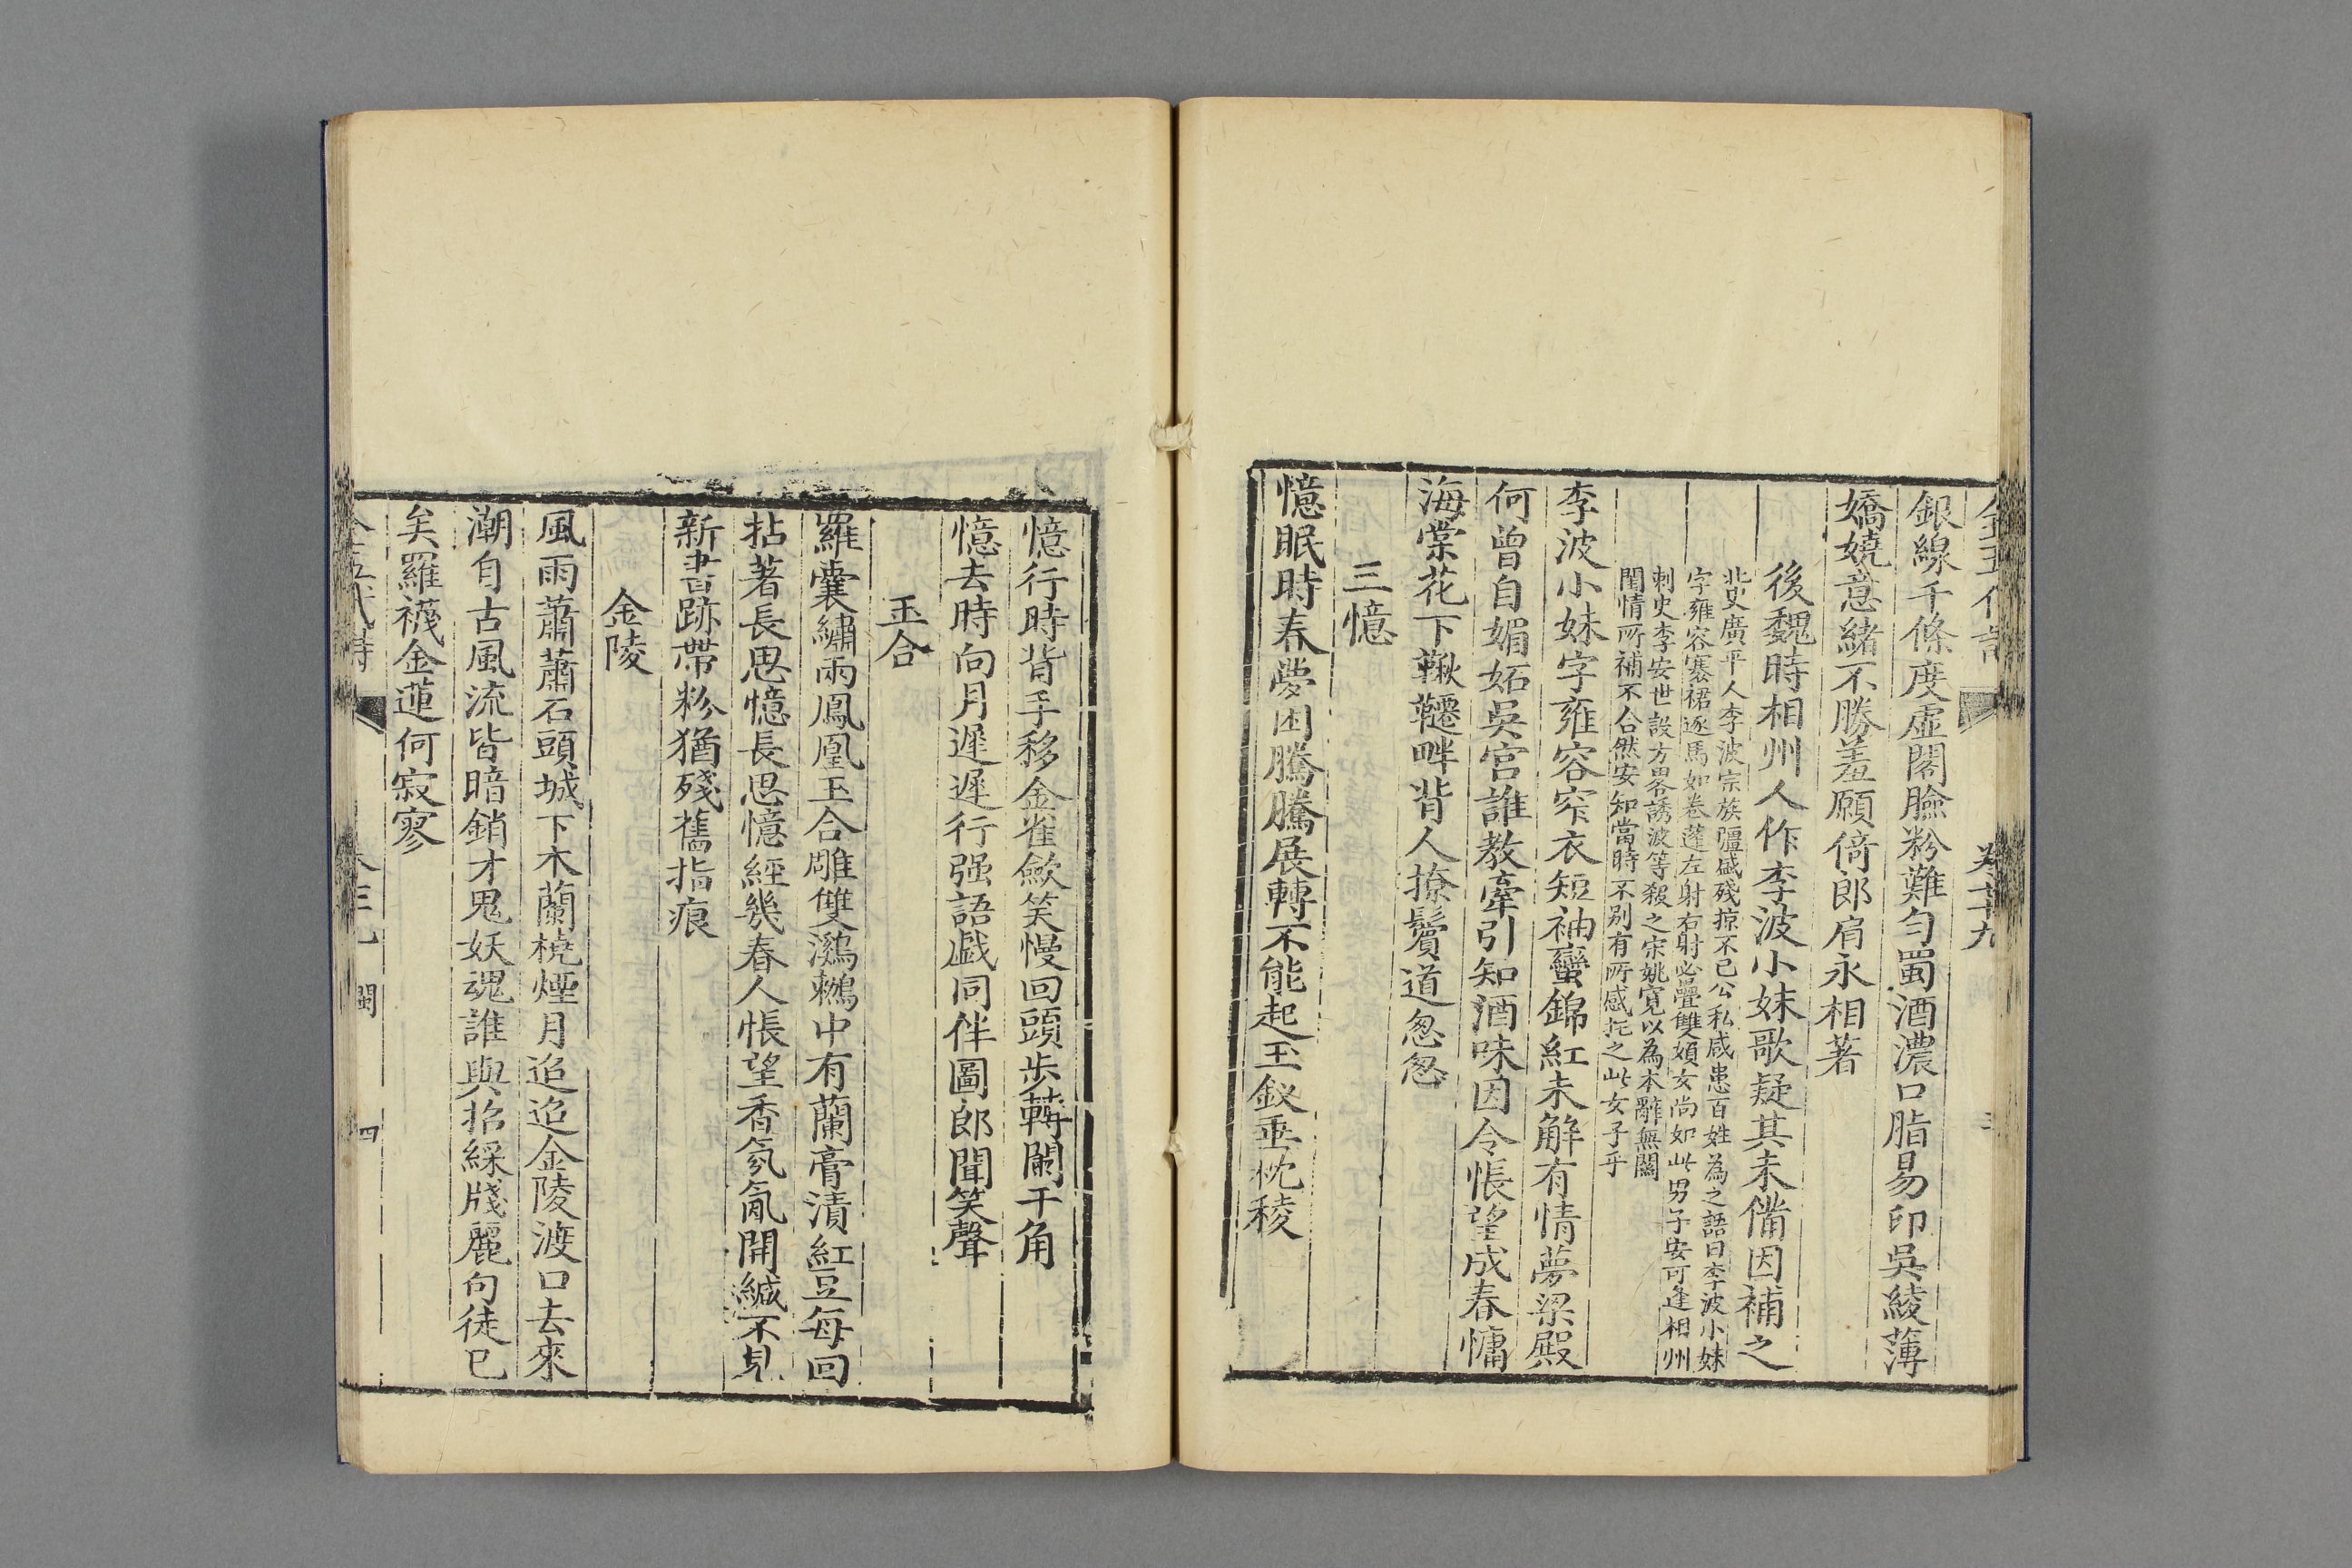 銀線千條度虛閣臉粉難勻蜀酒濃口脂易印吳綾薄
嬌嬈意緒不勝羞願倚郎肩永相著
後魏時相州人作李波小妹歌疑其未備因補之
北史廣平人李波宗族彊盛殘掠不已公私咸患百姓為之語曰李波小妹
字雍容褰裙逐馬如卷蓬左射右射必疊雙婦女尚如此男子安可逢相州
刺史李安世設方畧誘波等殺之宋姚寬以為本辭無關
閨情所補不合然安知當時不別有所感托之此女子乎
李波小妹字雍容窄衣短袖蠻錦紅未解有情夢梁殿
何曾自媚妬吳宮誰教牽引知酒味因令悵望成春慵
海棠花下鞦韆畔背人撩鬢道忽忽
三憶
憶眠時春夢困騰騰展轉不能起玉釵垂枕稜
憶行時背手移金雀歛笑慢回頭步轉闌干角
憶去時向月遲遲行强語戲同伴圖郎聞笑聲
玉合
羅囊繡兩鳳凰玉合雕雙鸂鶒中有蘭膏漬紅豆每回
拈著長思憶長思憶經幾春人悵望香氛氳開緘不見
新書跡帶粉猶殘舊指痕
金陵
風雨蕭蕭石頭城下木蘭橈煙月迢迢金陵渡口去來
潮自古風流皆暗銷才鬼妖魂誰與招綵牋麗句徒已
矣羅襪金蓮何寂寥
四